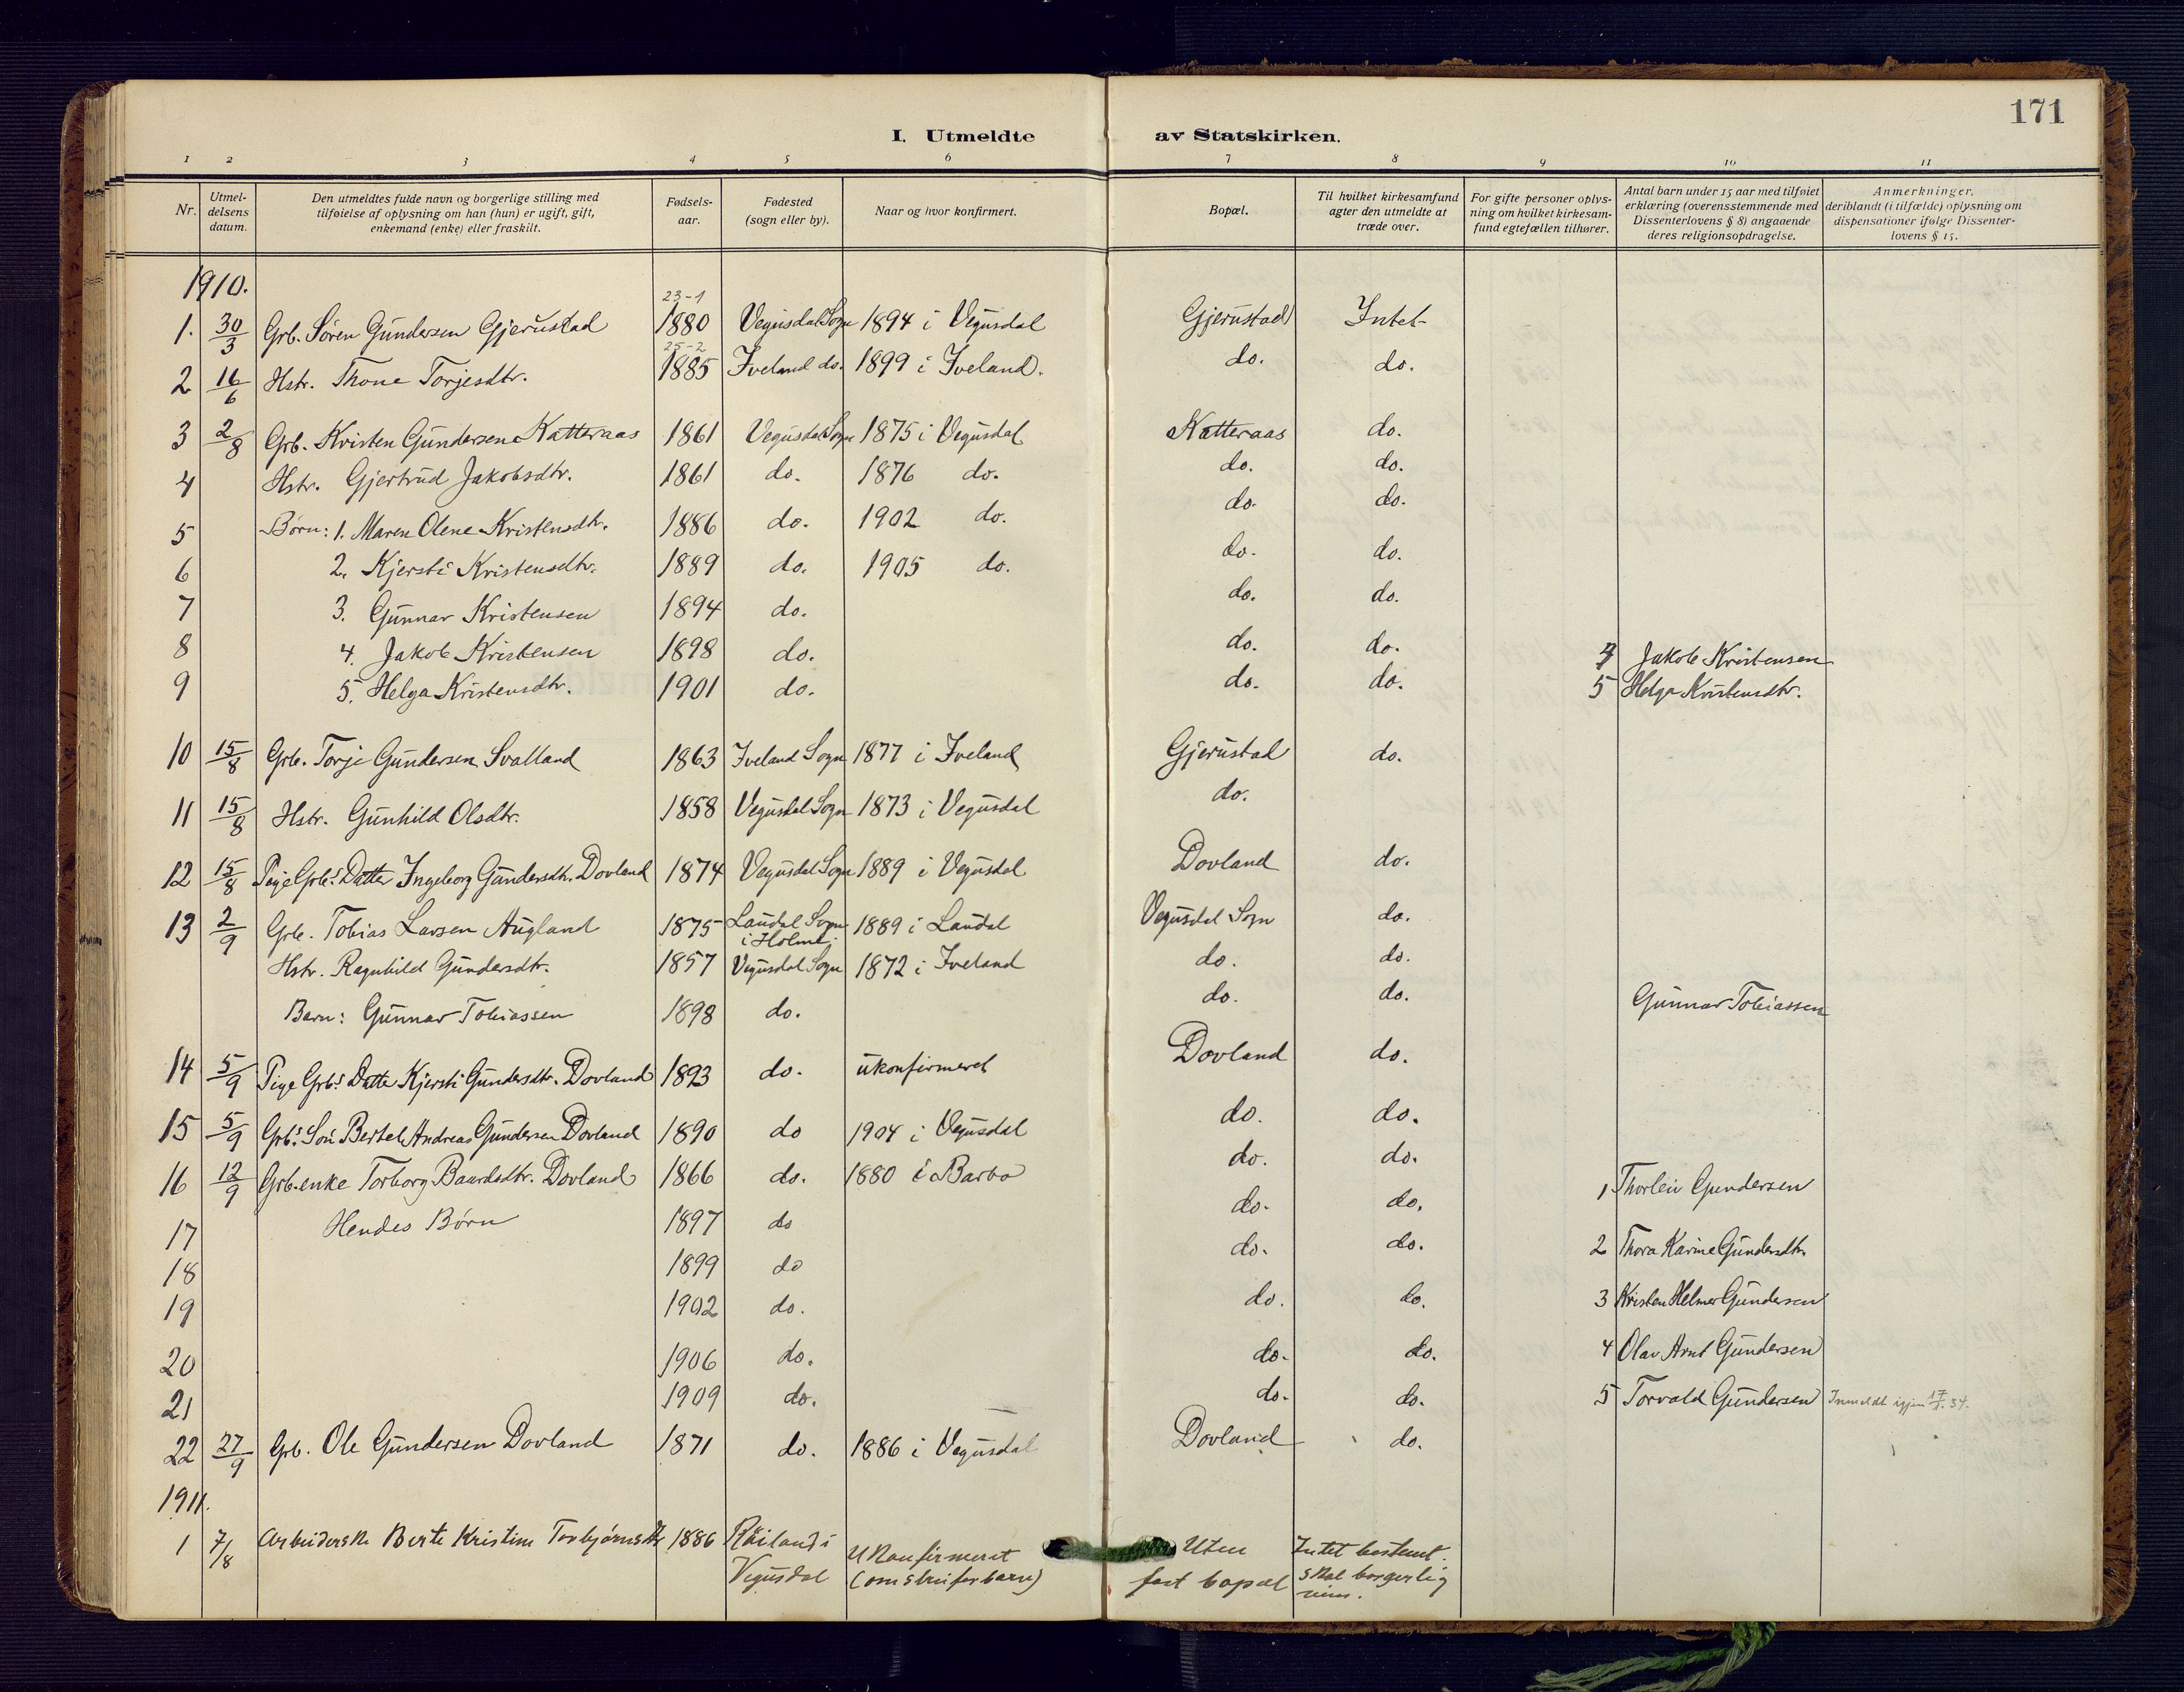 171
I. Utmeldte av Statskirken.
1 2 3 4 5 6 7 8 9 10 11
Nr. | Utmeldelsens datum. | Den utmeldtes fulde navn og borgerlige stilling med tilføielse af oplysning om han (hun) er ugift, gift, enkemand (enke) eller fraskilt. | Fødselsaar. | Fødested (sogn eller by). | Naar og hvor konfirmert. | Bopæl. | Til hvilket kirkesamfund agter den utmeldte at træde over. | For gifte personer oplysning om hvilket kirkesamfund egtefællen tilhører. | Antal barn under 15 aar med tilføiet erklæring (overensstemmende med Dissenterlovens § 8) angaaende deres religionsopdragelse. | Anmerkninger, deriblandt (i tilfælde) oplysning om dispensationer ifølge Dissenterlovens § 15.
1910.
1. 30/3 Grb. Søren Gundersen Gjerustad 23-1 1880 Vegusdal Sogn 1894 i Vegusdal Gjerustad Intet
2 16/6 Hstr. Thone Torjesdtr. 25-2 1885 Iveland do. 1899 i Iveland. do. do.
3 2/8 Grb. Kristen Gundersen Katteraas 1861 Vegusdal Sogn 1875 i Vegusdal Katteraas do.
4 Hstr. Gjertrud Jakobsdtr. 1861 do. 1876 do. do. do.
5 Børn: 1. Maren Olene Kristensdtr. 1886 do. 1902 do. do. do.
6 2. Kjersti Kristensdtr. 1889 do. 1905 do. do. do.
7 3. Gunnar Kristensen 1894 do. do. do.
8 4. Jakob Kristensen 1898 do. do. do. 4 Jakob Kristensen
9 5. Helga Kristensdtr. 1901 do. do. do. 5 Helga Kristensdtr.
10 15/8 Grb. Torje Gundersen Svalland 1863 Iveland Sogn 1877 i Iveland Gjerustad do.
11 15/8 Hstr. Gunhild Olsdtr. 1858 Vegusdal Sogn 1873 i Vegusdal do.
12 15/8 Pige Grbs. Datter Ingeborg Gundersdtr. Dovland 1874 Vegusdal Sogn 1889 i Vegusdal Dovland do.
13 2/9 Grb. Tobias Larsen Augland 1875 Laudal Sogn i Holme. 1889 i Laudal Vegusdal Sogn do.
Hstr. Ragnhild Gundersdtr. 1857 Vegusdal Sogn 1872 i Iveland do. do.
Barn: Gunnar Tobiassen 1898 do. do. do. Gunnar Tobiassen
14 5/9 Pige Grbs. Datter Kjersti Gundersdtr. Dovland 1893 do. ukonfirmeret Dovland do.
15 5/9 Grbs. Søn Bertel Andreas Gundersen Dovland 1890 do 1904 i Vegusdal do. do.
16 12/9 Grb.enke Torborg Baardsdtr. Dovland 1866 do. 1880 i Barbo do. do.
17 Hendes Børn 1897 do do. do. 1 Thorleiv Gundersen
18 1899 do do. do. 2 Thora Karine Gundersdtr.
19 1902 do. do. do. 3 Kristen Helmer Gundersen
20 1906 do. do. do. 4 Olav Arnt Gundersen
21 1909 do. do. do. 5 Torvald Gundersen Inmeldt igjen 34.
22 27/9 Grb. Ole Gundersen Dovland 1871 do. 1886 i Vegusdal Dovland do.
1911.
1 7/8 Arbeiderske Berte Kristine Torbjørnsdtr 1886 i Vegusdal Ukonfirmeret (omstreiferbarn) Uten fast bopæl Intet bestemt. skal borgerlig